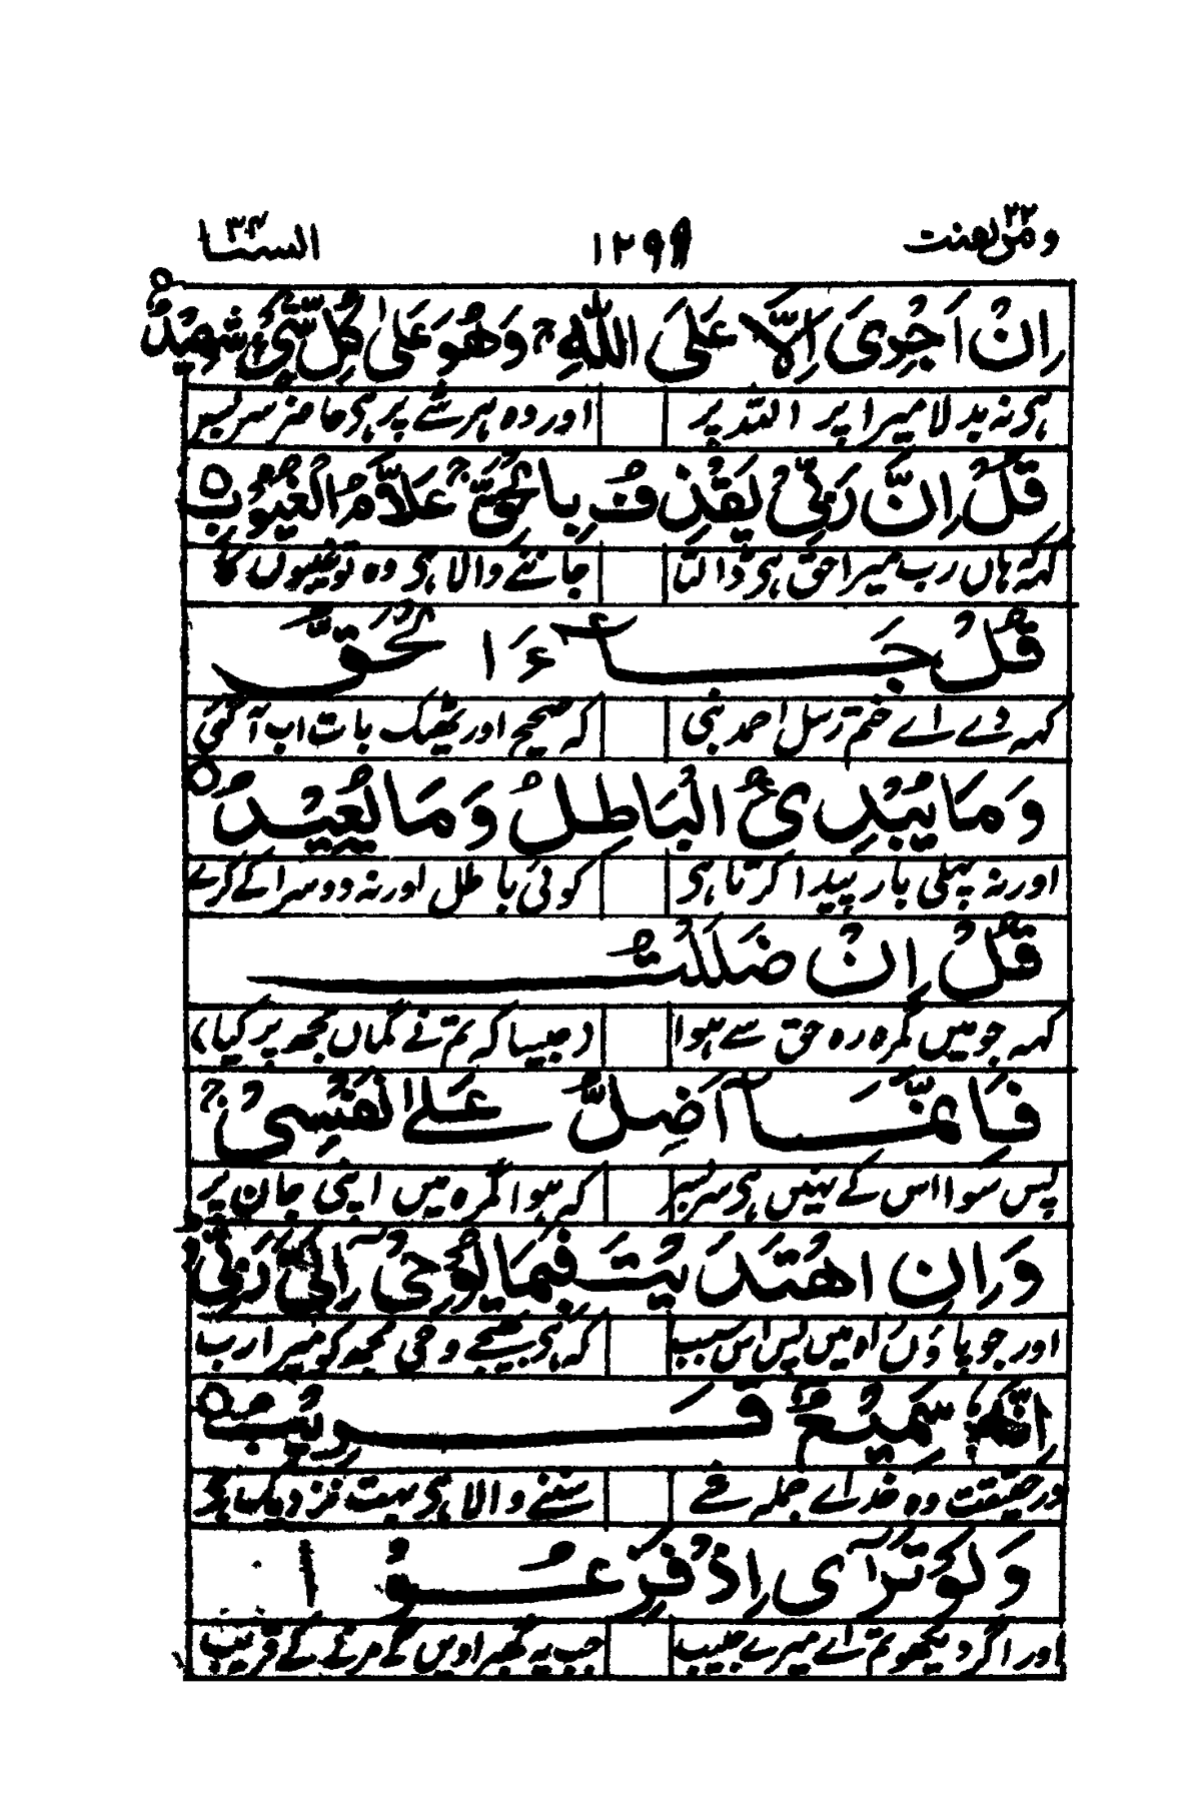 ومن یقنت ۲۲ ۱۲۹۹ السبا ۳۴
اِنْ اَجْرِیَ اِلَّا عَلَی اللّٰهِ ۚ وَهُوَ عَلٰی کُلِّ شَیْءٍ شَهِیْدٌ ۝
ہی نہ بدلا میرا پر اللہ پر اور وہ ہر شے پر ہی حاضر سر بسر
قُلْ اِنَّ رَبِّیْ یَقْذِفُ بِالْحَقِّ ۚ عَلَّامُ الْغُیُوْبِ ۝
کہہ ہاں رب میرا حق ہی ڈالتا جاننے والا ہی وہ تو غیبوں کا
قُلْ جَآءَ الْحَقُّ
کہہ دے اے ختم رسل احمد نبی کہ صحیح اور ٹھیک بات اب آ گئی
وَمَا یُبْدِئُ الْبَاطِلُ وَمَا یُعِیْدُ ۝
اور نہ پہلی بار پیدا کرتا ہی کوئی باطل اور نہ دوسرا کے کرے
قُلْ اِنْ ضَلَلْتُ
کہہ جو میں گمرہ رہ حق سے ہوا (جیسا کہ تم نے گماں مجھ پر کیا)
فَاِنَّمَآ اَضِلُّ عَلٰی نَفْسِیْ ۚ
پس سوا اس کے نہیں ہی سر بسر کہ ہوا گمرہ میں اپنی جان پر
وَاِنِ اهْتَدَیْتُ فَبِمَا یُوْحِیْ اِلَیَّ رَبِّیْ
اور جو پاؤں راہ میں پس اس سبب کہ ہی بھیجے وحی مجھ کو میرا رب
اِنَّهٗ سَمِیْعٌ قَرِیْبٌ ۝
در حقیقت وہ خدائے جملہ شے سننے والا ہی بہت نزدیک ہے
وَلَوْ تَرٰٓی اِذْ فَزِعُوْا
اور اگر دیکھو تم اے میرے حبیب جب یہ گھبراویں گے مرنے کے قریب